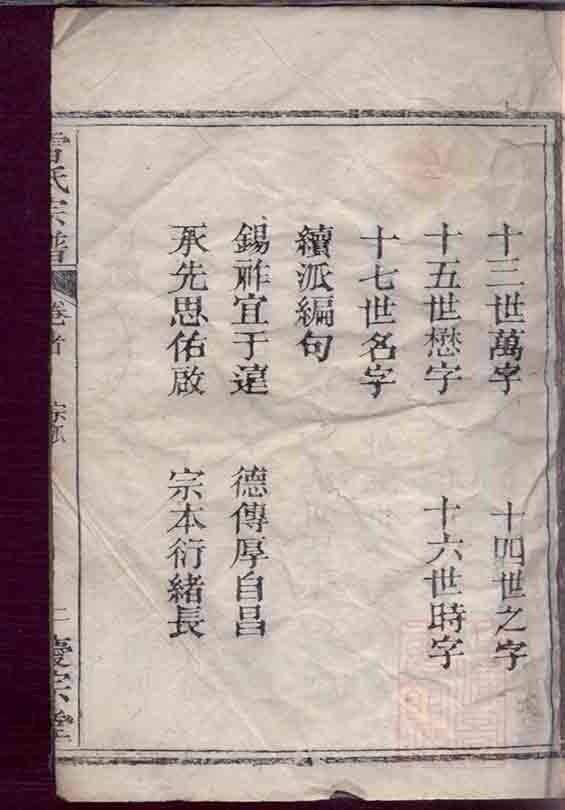 十三世萬字　十四世之字
十五世懋字　十六世時字
十七世名字
續派編句
錫祚宜于遠　德傳厚自昌
承先思佑啟　宗本衍緒長
氏宗譜
卷首
宗派
二
慶宗堂